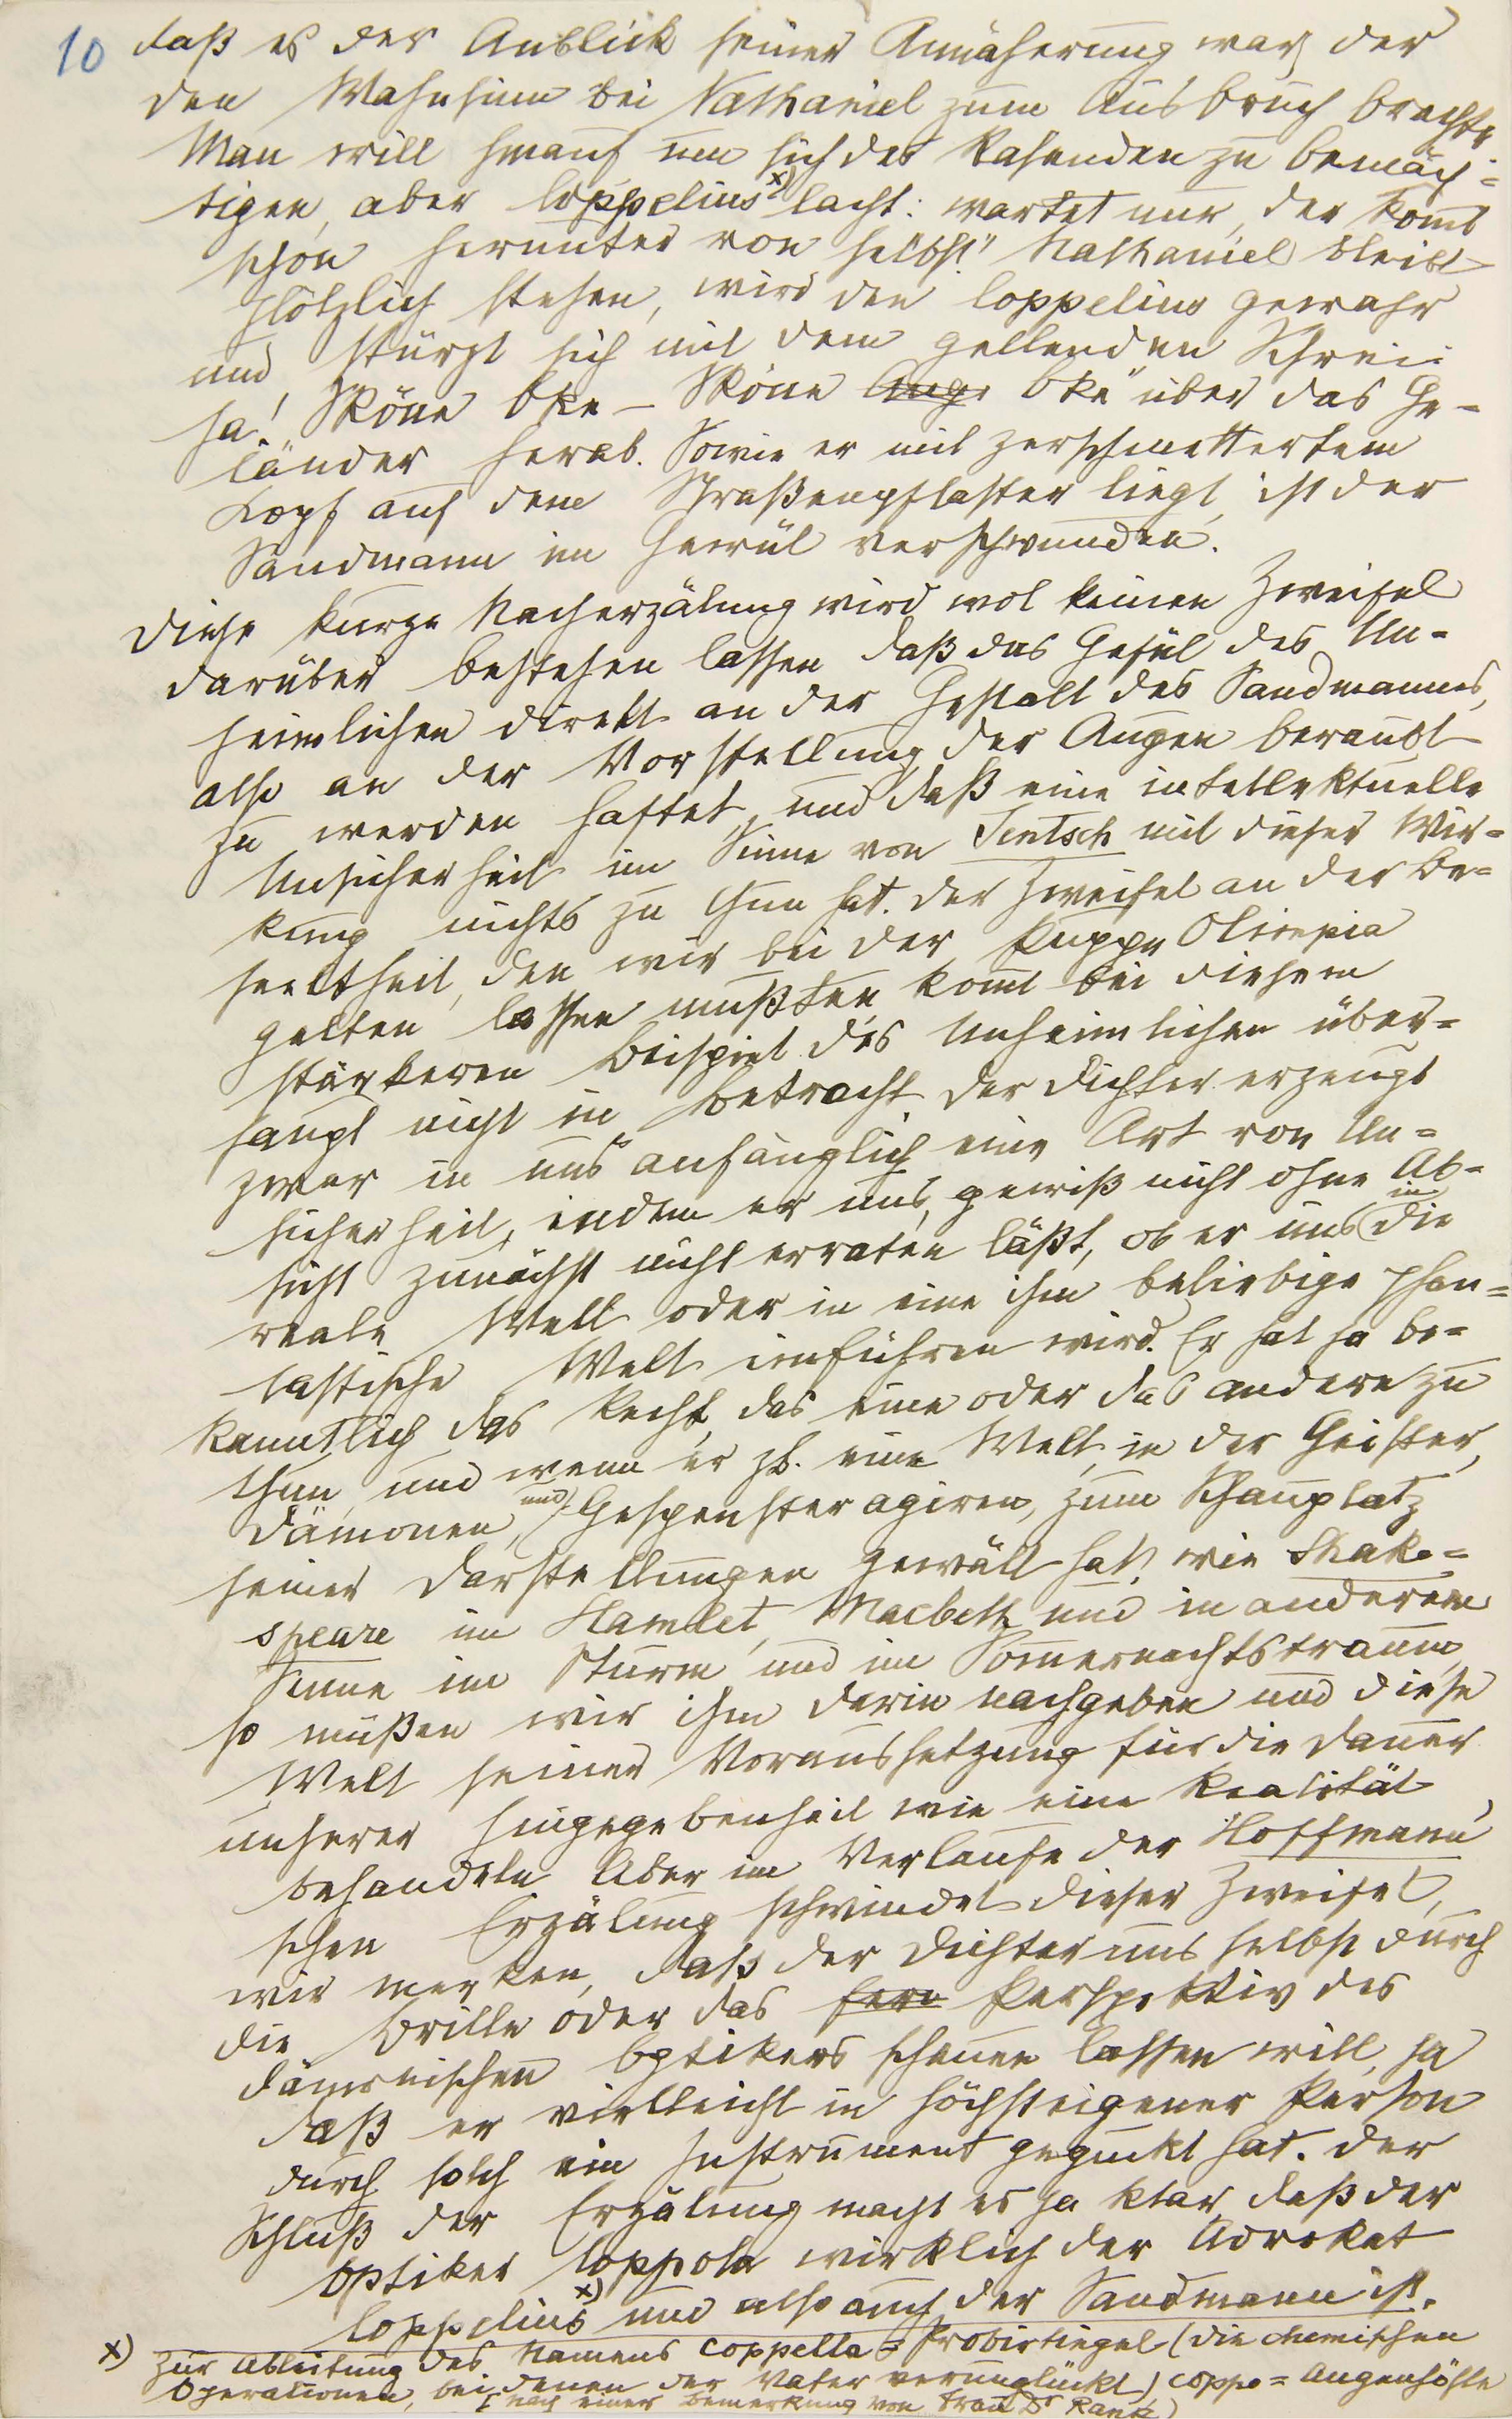 10 daß es der Anblick seiner Annäherung war, der
den Wahnsinn bei Nathaniel zum Ausbruch brachte.
Man will hinauf um sich des Rasenden zu bemäch-
tigen, aber Coppelius x) lacht: wartet nur, der kom̅t
schon herunter von selbst." Nathaniel bleibt
plötzlich stehen, wird den Coppelius gewahr
und stürzt sich mit dem gellenden Schrei:
Ja! Sköne Oke – Sköne Aug Oke" über das Ge-
länder herab. Sowie er mit zerschmettertem
Kopf auf dem Straßenpflaster liegt, ist der
Sandmann im Gewül verschwunden.
Diese kurze Nacherzälung wird wol keinen Zweifel
darüber bestehen lassen daß das Gefül des Un-
heimlichen direkt an der Gestalt des Sandmannes,
also an der Vorstellung der Augen beraubt
zu werden haftet, und daß eine intellektuelle
Unsicherheit im Sinne von Jentsch mit dieser Wir-
kung nichts zu thun hat. Der Zweifel an der Be-
seeltheit, den wir bei der Puppe Olimpia
gelten lassen mußten, kom̅t bei diesem
stärkeren Beispiel des Unheimlichen über-
haupt nicht in Betracht. Der Dichter erzeugt
zwar in uns anfänglich eine Art von Un-
sicherheit, indem er uns, gewiß nicht ohne Ab-
sicht zunächst nicht erraten läßt, ob er uns in die
reale Welt oder in eine ihm beliebige phan-
tastische Welt einführen wird. Er hat ja be-
kanntlich das Recht, das eine oder das andere zu
thun, und wenn er zb. eine Welt, in der Geister,
Dämonen, und Gespenster agiren, zum Schauplatz
seiner Darstellungen gewält hat, wie Shake-
speare im Hamlet, Macbeth und in anderem
Sinne im Sturm und im Som̅ernachtstraum,
so müßen wir ihm darin nachgeben und diese
Welt seiner Voraussetzung für die Dauer
unserer Hingegebenheit wie eine Realität
behandeln. Aber im Verlaufe der Hoffmann'
schen Erzälung schwindet dieser Zweifel,
wir merken, daß der Dichter uns selbst durch
die Brille oder das Fern Perspektiv des
dämonischen Optikers schauen lassen will, ja
daß er vielleicht in höchsteigener Person
durch solch ein Instrument geguckt hat. Der
Schluß der Erzälung macht es ja klar, daß der
Optiker Coppola wirklich der Advokat
Coppelius x) und also auch der Sandmann ist.
x) Zur Ableitung des Namens Coppella = Probirtiegel (die chemischen
Operationen, bei denen der Vater verunglückt) coppo = Augenhöhle
(nach einer Bemerkung von Frau Dr Rank)